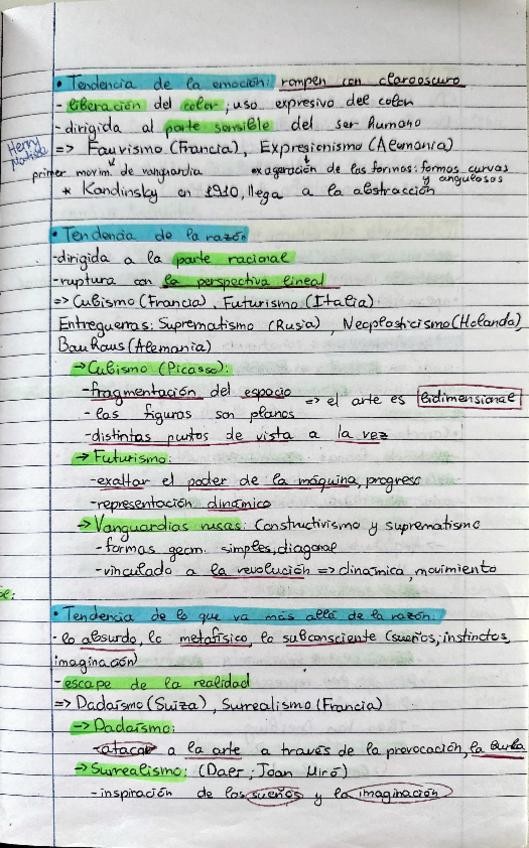 • Tendencia de la emoción: rompen con claroscuro
- liberación del color; uso expresivo del color
- dirigida al parte sensible del ser humano
Henry Matisse
=> Fauvismo (Francia), Expresionismo (Alemania)
primer movim. de vanguardia exageración de las formas: formas curvas y angulosas
* Kandinsky en 1910, llega a la abstracción
• Tendencia de la razón
- dirigida a la parte racional
- ruptura con la perspectiva lineal
=> Cubismo (Francia), Futurismo (Italia)
Entreguerras: Suprematismo (Rusia), Neoplasticismo (Holanda),
Bauhaus (Alemania)
→ Cubismo (Picasso):
- fragmentación del espacio => el arte es bidimensional
- las figuras son planos
- distintas puntos de vista a la vez
→ Futurismo:
- exaltar el poder de la máquina, progreso
- representación dinámica
→ Vanguardias rusas: Constructivismo y suprematismo
- formas geom. simples, diagonal
- vinculado a la revolución => dinamica, movimiento
• Tendencia de lo que va más allá de la razón:
- lo absurdo, lo metafísico, lo subconsciente (sueños, instinctos,
imaginación)
- escape de la realidad
=> Dadaísmo (Suiza), Surrealismo (Francia)
→ Dadaísmo:
- atacar a la arte a través de la provocación, la burla
→ Surrealismo: (Daer, Joan Miró)
- inspiración de los sueños y la imaginación